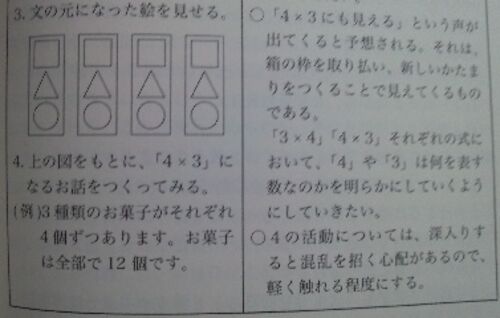 3. 文の元になった絵を見せる。
4. 上の図をもとに、「4×3」に
なるお話をつくってみる。
(例)3種類のお菓子がそれぞれ
4個ずつあります。お菓子
は全部で12個です。
○「4×3にも見える」という声が
出てくると予想される。それは、
箱の枠を取り払い、新しいかたま
りをつくることで見えてくるもの
である。
「3×4」「4×3」それぞれの式に
おいて、「4」や「3」は何を表す
数なのかを明らかにしていくよう
にしていきたい。
○4の活動については、深入りす
ると混乱を招く心配があるので、
軽く触れる程度にする。